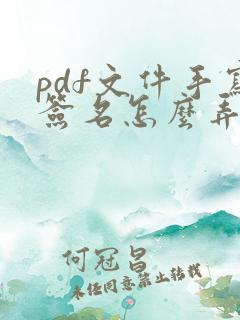 pdf文件手寫
簽名怎麼弄
何冠昌
未经同意禁止转载